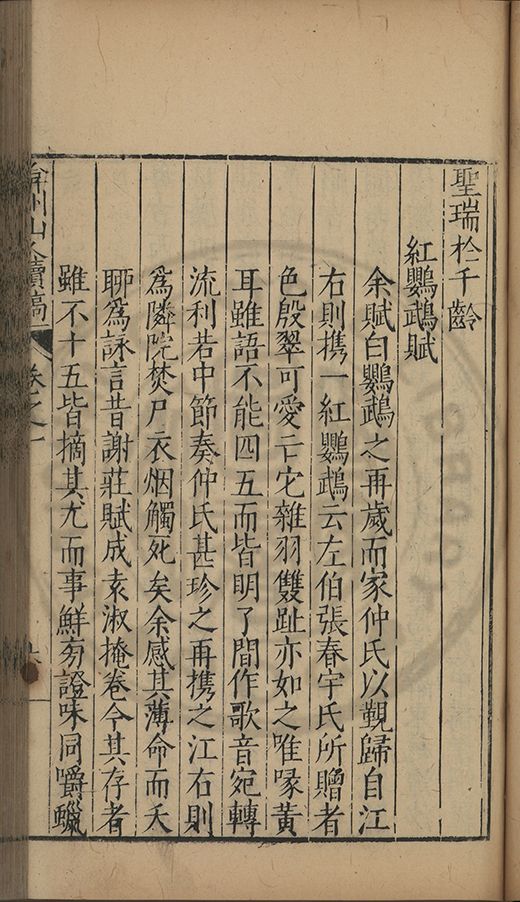 聖瑞於千齡
紅鸚鵡賦
余賦白鸚鵡之再歲而家仲氏以覲歸自江
右則携一紅鸚鵡云左伯張春宇氏所贈者
色殷翠可愛亡它雜羽雙趾亦如之唯喙黃
耳雖語不能四五而皆明了間作歌音宛轉
流利若中節奏仲氏甚珍之再携之江右則
為隣院焚尸衣烟觸死矣余感其薄命而夭
聊為詠言昔謝莊賦成袁淑掩卷今其存者
雖不十五皆摘其尤而事鮮旁證味同嚼蠟
弇州山人續稿 卷之一